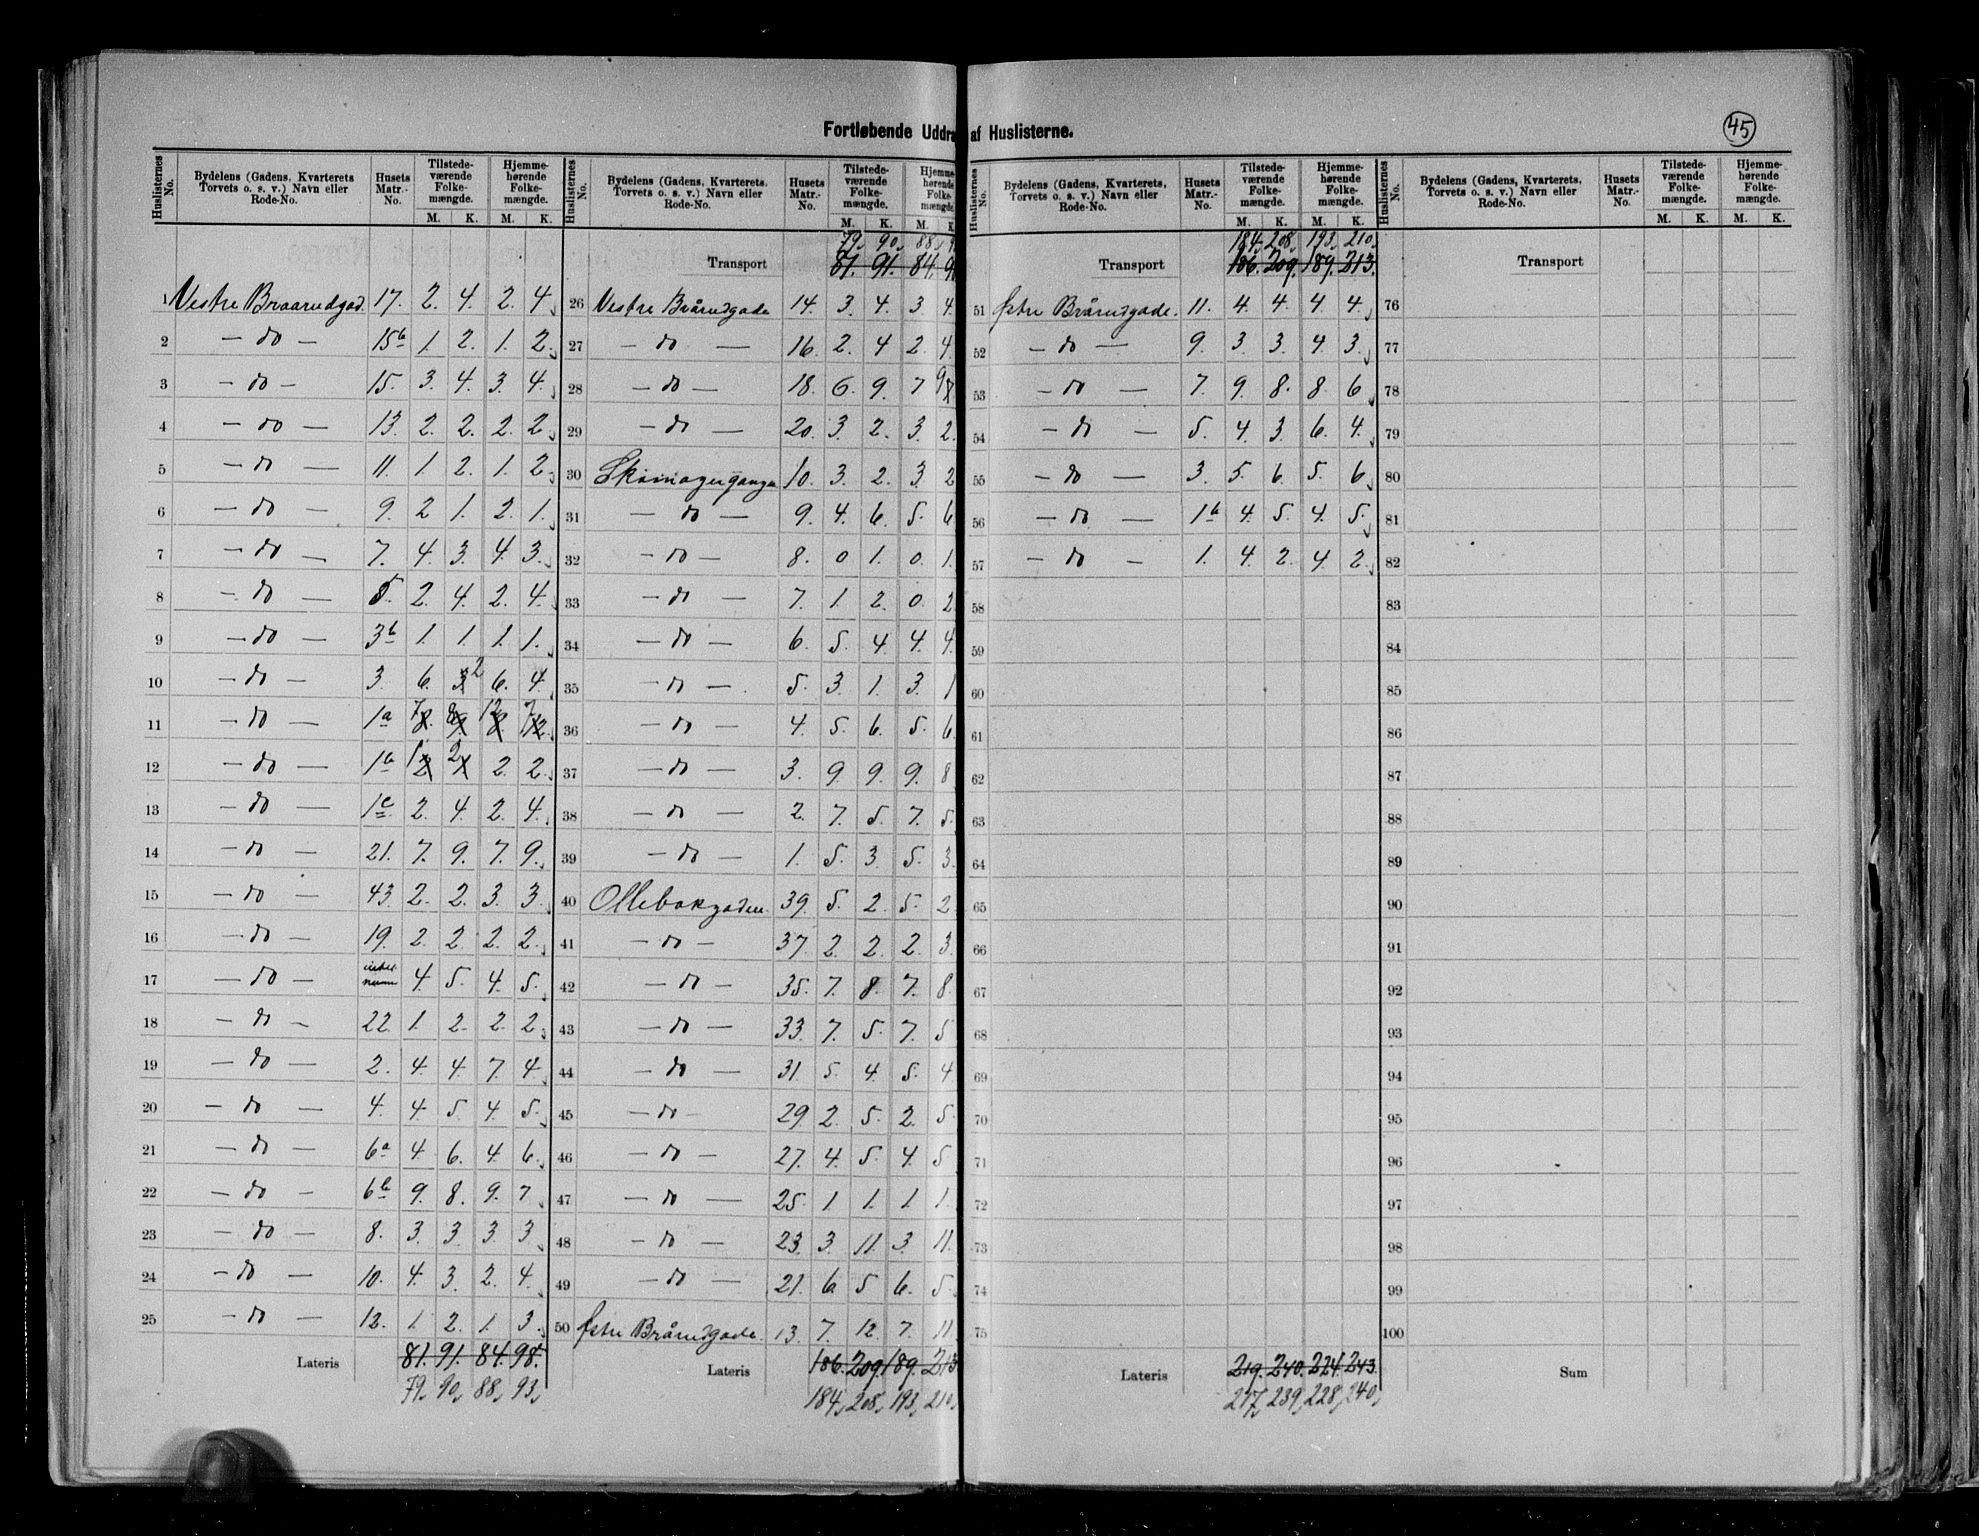 Fortløbende Uddra af Huslisterne.
45
Huslisternes No. | Bydelens (Gadens, Kvarterets Torvets o. s. v.) Navn eller Rode-No. | Husets Matr.-No. | Tilstede-værende Folke-mængde. M. K. | Hjemme-hørende Folke-mængde. M. K.
1 Vestre Braarudgad. 17. 2. 4. 2. 4.
2 — do — 15b 1. 2. 1. 2.
3 — do — 15. 3. 4. 3. 4.
4 — do — 13. 2. 2. 2. 2.
5 — do — 11. 1. 2. 1. 2.
6 — do — 9. 2 1. 2. 1.
7 — do — 7. 4. 3. 4. 3.
8 — do — 5. 2. 4. 2. 4.
9 — do — 3b 1. 1. 1. 1.
10 — do — 3. 6. 3 2 6. 4.
11 — do — 1a 7 8. 8 9. 12 8. 7 12.
12 — do — 1b 1 2 2 1 2. 2.
13 — do — 1c 2. 4. 2. 4.
14 — do — 21. 7. 9. 7. 9.
15 — do — 43. 2. 2. 3. 3.
16 — do — 19. 2. 2. 2. 2.
17 — do — 4. 5. 4. 5.
18 — do — 22. 1. 2. 2. 2.
19 — do — 2. 4. 4. 7. 4.
20 — do — 4. 4. 5. 4. 5.
21 — do — 6a 4. 6. 4. 6.
22 — do — 6b 9. 8. 9. 7
23 — do — 8. 3. 3. 3. 3.
24 — do — 10. 4. 3. 2. 4.
25 — do — 12. 1. 2. 1. 3.
Lateris 81. 91. 84. 98.
79 90 88 93
Huslisternes No. | Bydelens (Gadens, Kvarterets, Torvets o. s. v.) Navn eller Rode-No. | Husets Matr.-No. | Tilstede-værende Folke-mængde. M. K. | Hjemme-hørende Folke-mængde M.
79 90 88 9
Transport 81. 91. 84. 9
26 Vestre Brårudgade 14. 3. 4. 3 4.
27 — do — 16. 2. 4 2. 4.
28 — do — 18. 6. 9. 7 9
29 — do — 20. 3. 2. 3. 2.
30 Skomagergangen 10. 3. 2. 3. 2
31 — do — 9. 4. 6. 5. 6
32 — do — 8. 0 1. 0. 1.
33 — do — 7. 1. 2. 0. 2
34 — do — 6. 5. 4. 4. 4
35 — do — 5. 3. 1. 3. 1
36 — do — 4. 5. 6. 5. 6.
37 — do — 3. 9. 9. 9. 8
38 — do — 2. 7. 5. 7. 5.
39 — do — 1. 5. 3. 5. 3.
40 Ollebakgaden 39. 5. 2. 5. 2
41 — do — 37 2. 2. 2. 3.
42 — do — 35. 7. 8. 7. 8.
43 — do — 33. 7. 5. 7. 5
44 — do — 31. 5. 4. 5. 4
45 — do — 29. 2. 5. 2. 5
46 — do — 27. 4. 5. 4. 5
47 — do — 25. 1 1. 1. 1.
48 — do — 23. 3. 11. 3. 11.
49 — do — 21. 6 5 6. 5.
50 Østre Brårudgade. 13. 7. 12. 7. 11.
Lateris 186. 209. 189. 213
184 208 193 210
Huslisternes No. | Bydelens (Gadens, Kvarterets, Torvets o. s. v.) Navn eller Rode-No. | Husets Matr.-No. | Tilstede-værende Folke-mængde. M. K. | Hjemme-hørende Folke-mængde. M. K.
184 208 193 210
Transport 186. 209. 189. 213.
51 Østre Brårudgade. 11. 4. 4. 4. 4.
52 — do — 9. 3. 3. 4. 3.
53 — do — 7. 9. 8. 8. 6
54 — do — 5. 4. 3. 6. 4.
55 — do — 3. 5. 6. 5. 6
56 — do — 1b 4. 5. 4. 5.
57 — do — 1. 4. 2. 4. 2.
58
59
60
61
62
63
64
65
66
67
68
69
70
71
72
73
74
75
Lateris 219. 240. 224. 243.
217 239 228 240
Huslisternes No. | Bydelens (Gadens, Kvarterets, Torvets o. s. v.) Navn eller Rode-No. | Husets Matr.-No. | Tilstede-værende Folke-mængde. M. K. | Hjemme-hørende Folke-mængde. M. K.
Transport
76
77
78
79
80
81
82
83
84
85
86
87
88
89
90
91
92
93
94
95
96
97
98
99
100
Sum